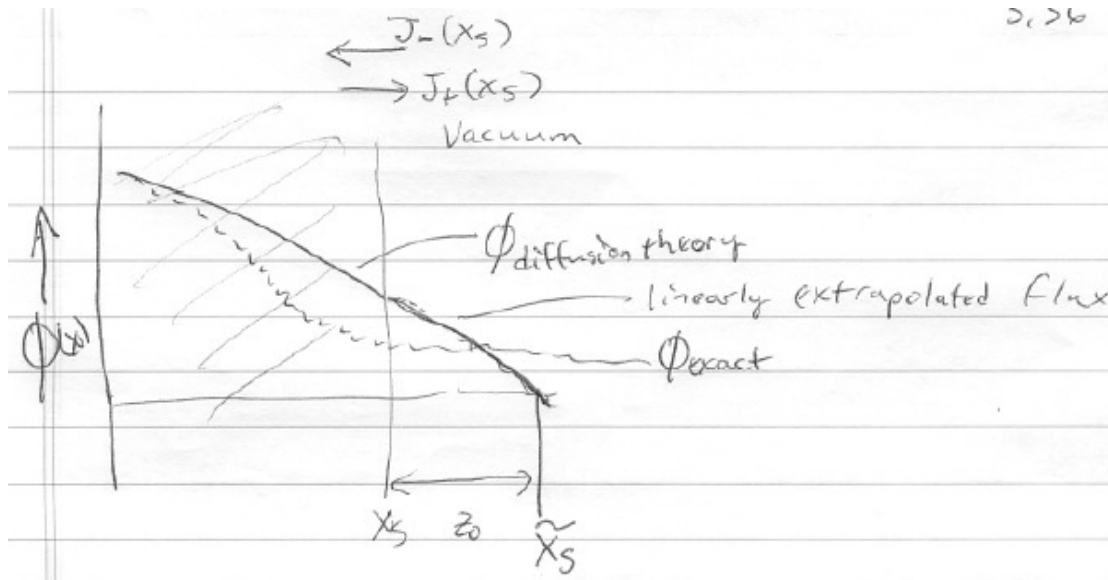 J-(xs)
J+(xs)
Vacuum
ϕ diffusion theory
linearly extrapolated flux
ϕ(x)
ϕ exact
xs z0 x̃s